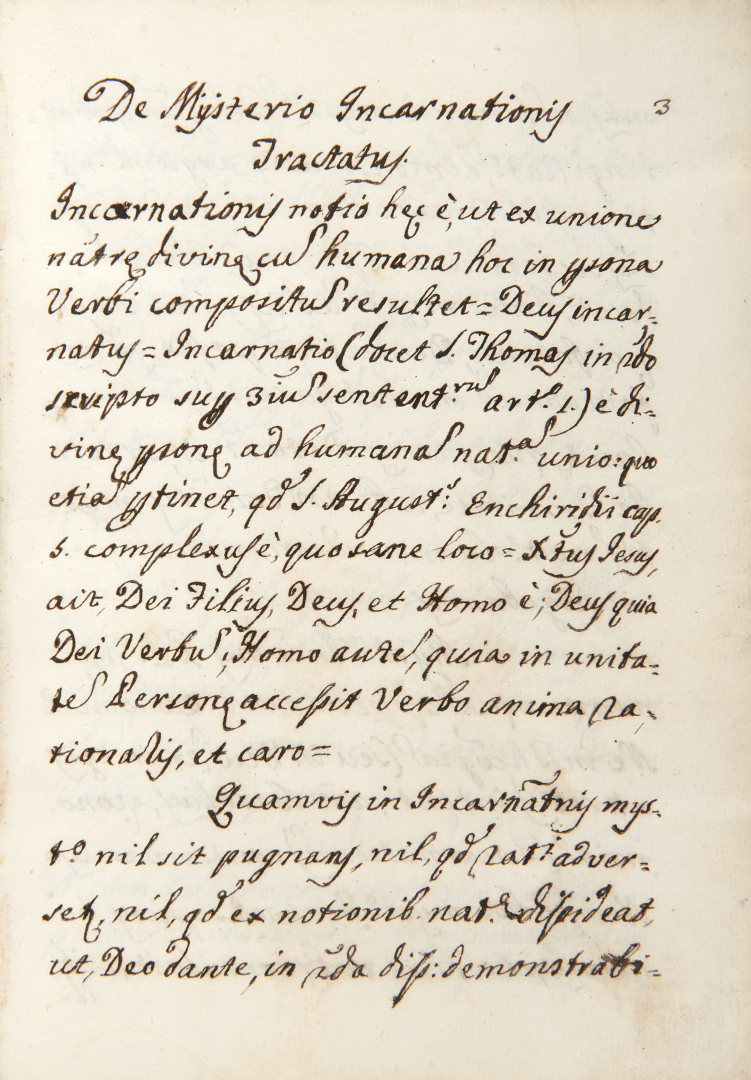 De Mysterio Incarnationis 3
Tractatus.
Incarnationis notio hęc è, ut ex unione
nãtrę divinę cũ humana hoc in psona
Verbi compositũ resultet = Deus incar-
natus = Incarnatio (docet S. Thomas in 2do
scripto sup 3iũ sentent.rũ art.º 1.) è di-
vinę psonę ad humanã nat.ã unio: quo
etiã ptinet, qđ S. August.s Enchiridii cap.
5. complexus è, quo sane loco = Xtus Jesus,
ait, Dei Filius, Deus, et Homo è; Deus quia
Dei Verbũ; Homo autẽ, quia in unita-
tẽ Personę accessit Verbo anima ra-
tionalis, et caro =
Quamvis in Incarnãtnis mys-
t.o nil sit pugnans, nil, qđ rat.i adver-
set, nil, qđ ex notionib. nat. dissideat,
ut, Deo dante, in 2da disp: demonstrabi-